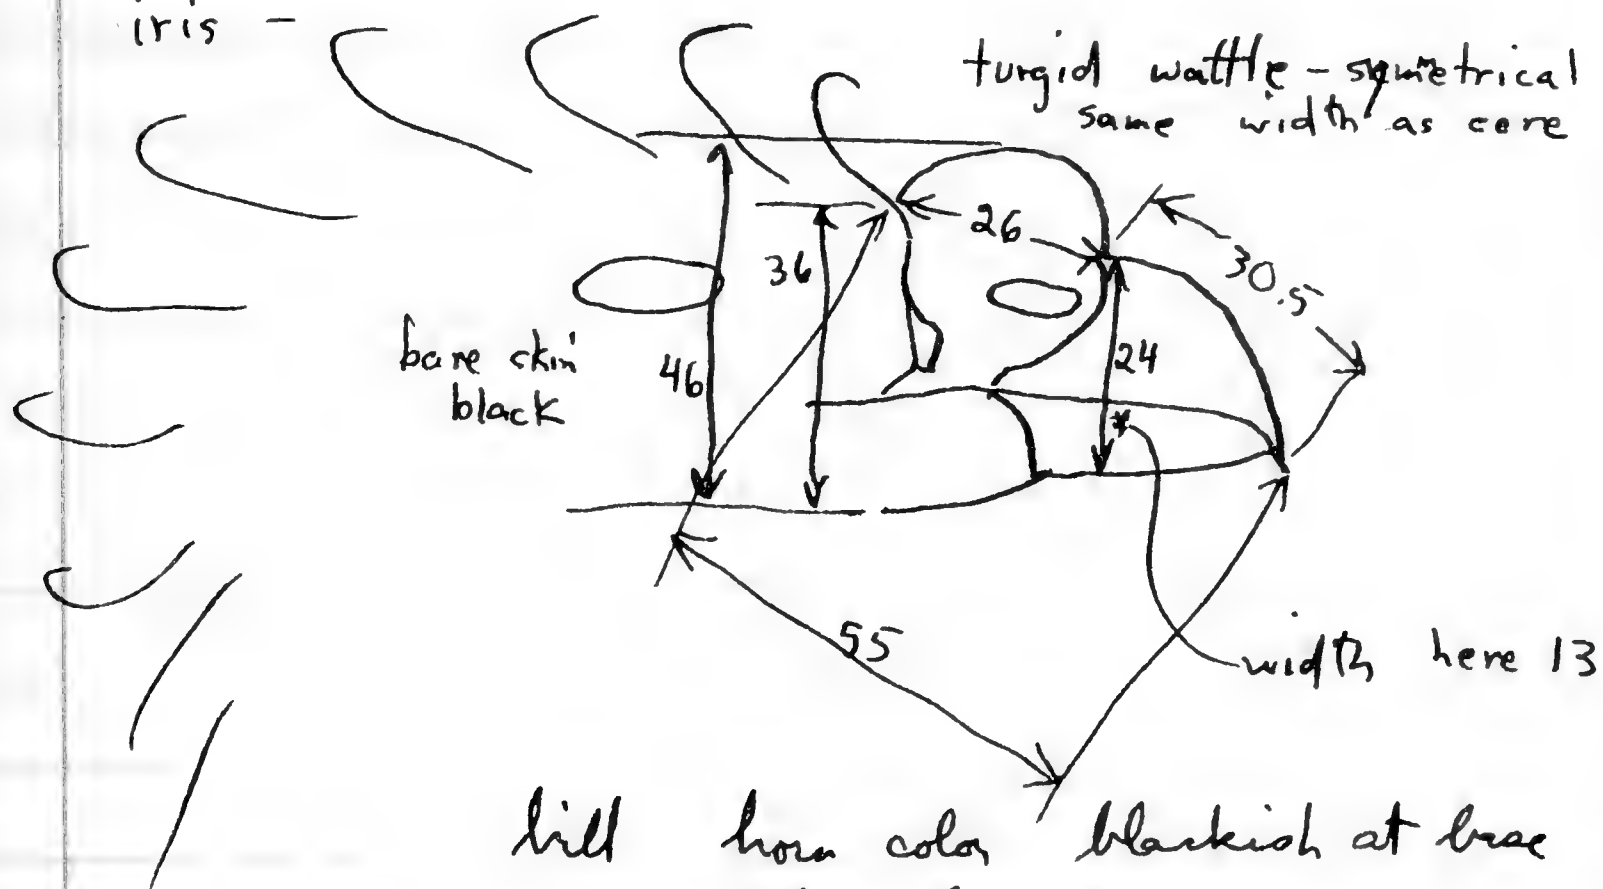 iris -
turgid wattle - symetrical
same width as cere
26
30.5
36
bare skin
black
46
24
55
width here 13
bill horn color blackish at base